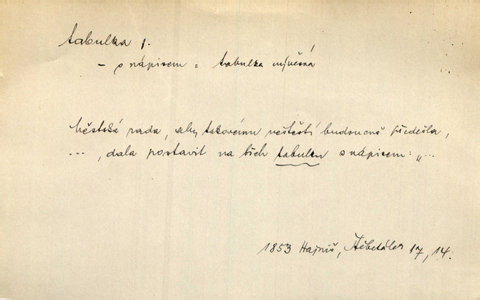 tabulka f.
– s nápisem = tabulka výučná
Městská rada, aby takovému neštěstí budoucně předešla,
..., dala postavit na břeh tabulku s nápisem: „...
1853 Hajniš, 17, 14.